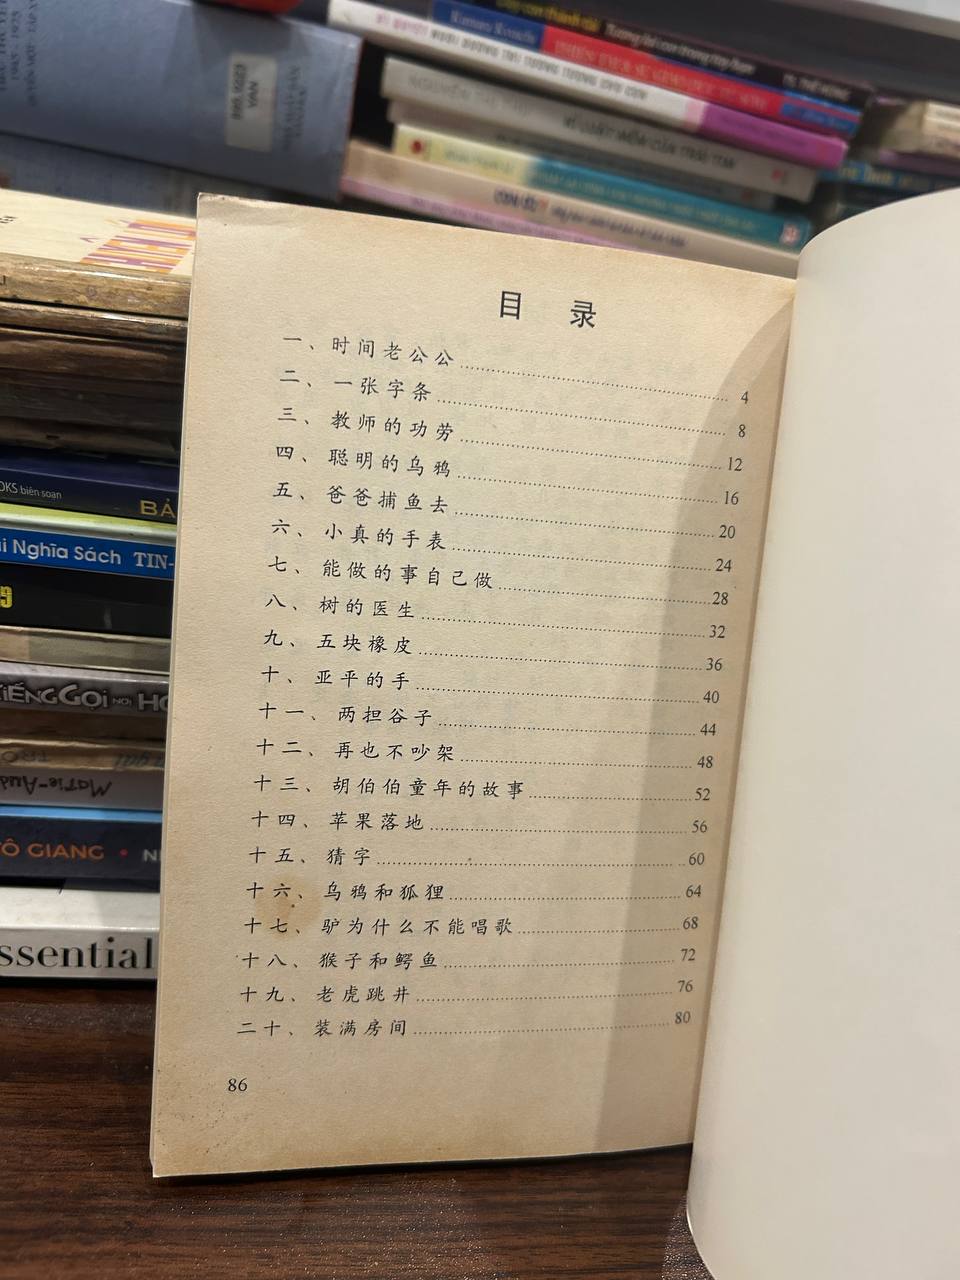 目 录
一、时间老公公 4
二、一张字条 8
三、教师的功劳 12
四、聪明的乌鸦 16
五、爸爸捕鱼去 20
六、小真的手表 24
七、能做的事自己做 28
八、树的医生 32
九、五块橡皮 36
十、亚平的手 40
十一、两担谷子 44
十二、再也不吵架 48
十三、胡伯伯童年的故事 52
十四、苹果落地 56
十五、猜字 60
十六、乌鸦和狐狸 64
十七、驴为什么不能唱歌 68
十八、猴子和鳄鱼 72
十九、老虎跳井 76
二十、装满房间 80
86
OKS biên soạn
BẢ
i Nghĩa Sách TIN-
TIẾNG GỌI NƠI HO
Marie-Aud
TÔ GIANG • N
ssential